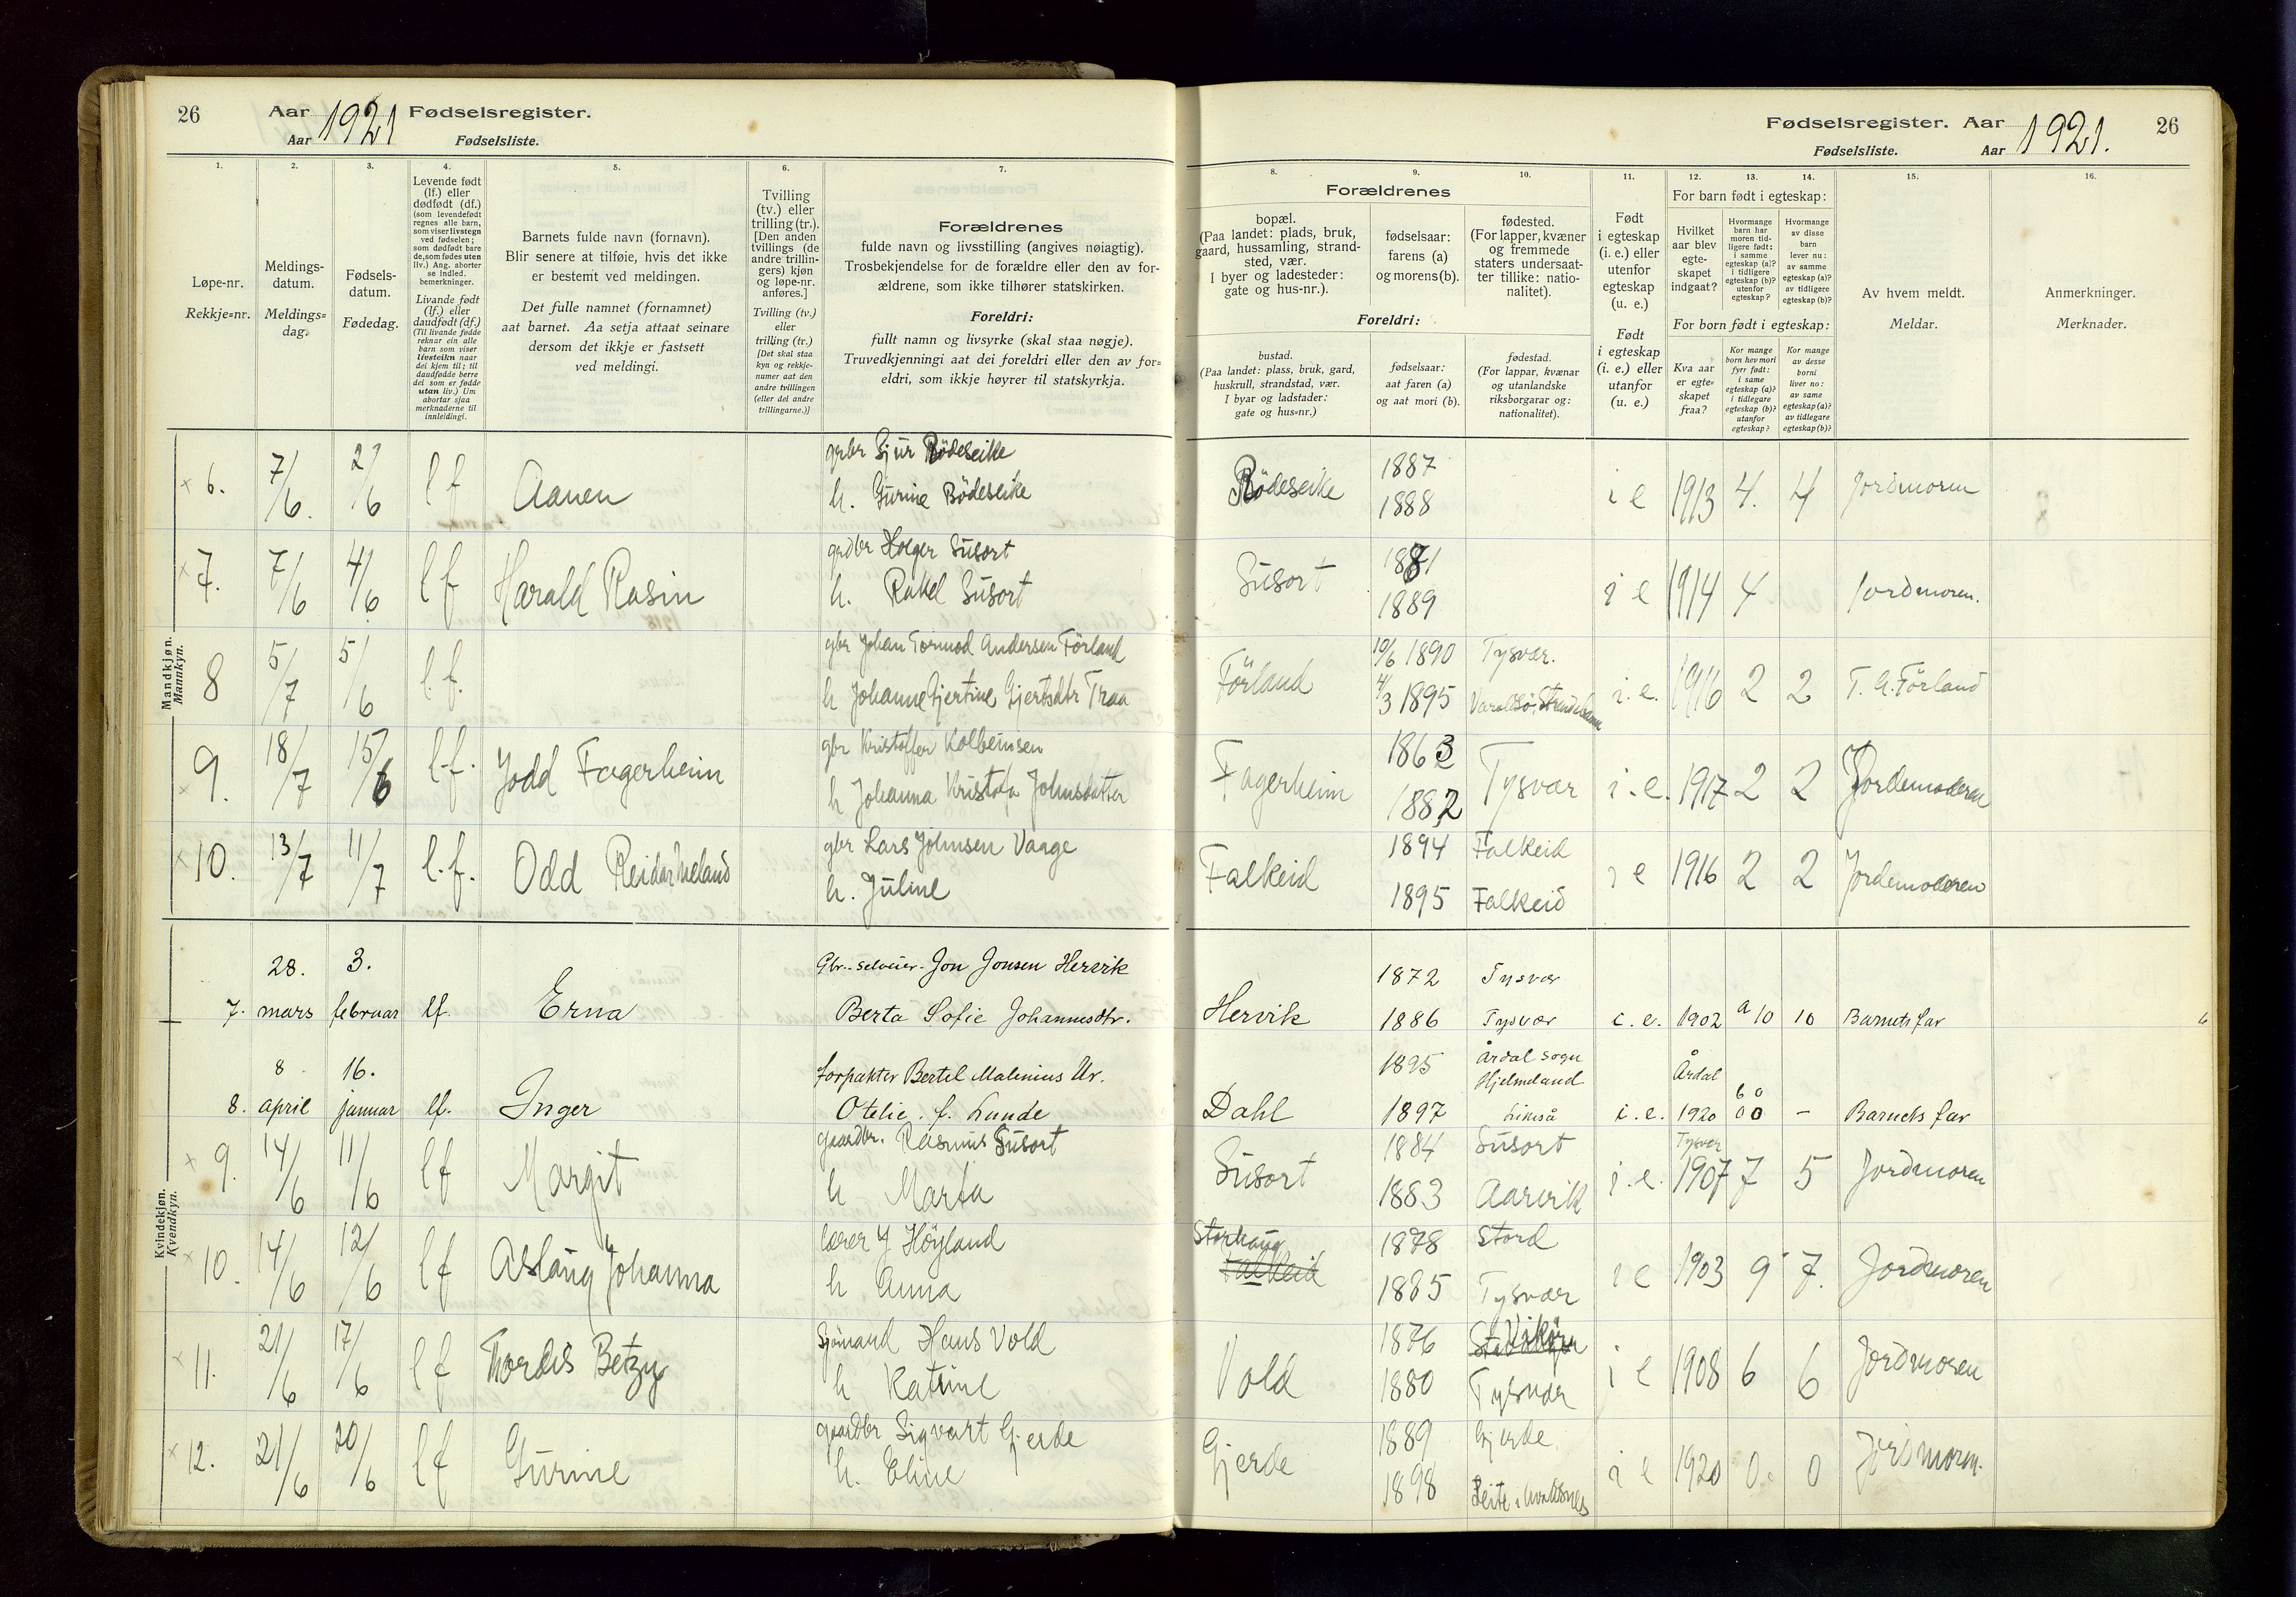 26 Aar 1921 Fødselsregister.
Aar Fødselsliste.
Fødselsregister. Aar 1921. 26
Fødselsliste. Aar
1. 2. 3. 4. 5. 6. 7. 8. 9. 10. 11. 12. 13. 14. 15. 16.
Løpe-nr.
Rekkje=nr.
Meldings-
datum.
Meldings=
dag.
Fødsels-
datum.
Fødedag.
Levende født
(lf.) eller
dødfødt (df.)
(som levendefødt
regnes alle barn,
som viser livstegn
ved fødselen;
som dødfødt bare
de, som fødes uten
liv.) Ang. aborter
se indled.
bemerkninger.
Livande født
(lf.) eller
daudfødt (df.)
(Til livande fødde
reknar ein alle
barn som viser
livsteikn naar
dei kjem til; til
daudfødde berre
dei som er fødde
utan liv.) Um
abortar sjaa
merknaderne til
innleidingi.
Barnets fulde navn (fornavn).
Blir senere at tilføie, hvis det ikke
er bestemt ved meldingen.
Det fulle namnet (fornamnet)
aat barnet. Aa setja attaat seinare
dersom det ikkje er fastsett
ved meldingi.
Tvilling
(tv.) eller
trilling (tr.).
[Den anden
tvillings (de
andre trillin-
gers) kjøn
og løpe-nr.
anføres.]
Tvilling (tv.)
eller
trilling (tr.)
[Det skal staa
kyn og rekkje-
numer aat den
andre tvillingen
(eller dei andre
trillingarne.)]
Forældrenes
fulde navn og livsstilling (angives nøiagtig).
Trosbekjendelse for de forældre eller den av for-
ældrene, som ikke tilhører statskirken.
Foreldri:
fullt namn og livsyrke (skal staa nøgje).
Truvedkjenningi aat dei foreldri eller den av for=
eldri, som ikkje høyrer til statskyrkja.
Forældrenes
bopæl.
(Paa landet: plads, bruk,
gaard, hussamling, strand-
sted, vær.
I byer og ladesteder:
gate og hus-nr.).
fødselsaar:
farens (a)
og morens (b).
fødested.
(For lapper, kvæner
og fremmede
staters undersaat-
ter tillike: natio-
nalitet).
Foreldri:
bustad.
(Paa landet: plass, bruk, gard,
huskrull, strandstad, vær.
I byar og ladstader:
gate og hus=nr.)
fødselsaar:
aat faren (a)
og aat mori (b).
fødestad.
(For lappar, kvænar
og utanlandske
riksborgarar og:
nationalitet).
Født
i egteskap
(i. e.) eller
utenfor
egteskap
(u. e.)
Født
i egteskap
(i. e.) eller
utanfor
(u. e.)
For barn født i egteskap:
Hvilket
aar blev
egte-
skapet
indgaat?
Hvormange
barn har
moren tid-
ligere født:
i samme
egteskap (a)?
i tidligere
egteskap (b)?
utenfor
egteskap?
Hvormange
av disse
barn
lever nu:
av samme
egteskap (a)?
av tidligere
egteskap (b)?
For born født i egteskap:
Kva aar
er egte=
skapet
fraa?
Kor mange
born hev mori
fyrr født:
i same
egteskap (a)?
i tidlegare
egteskap (b)?
utanfor
egteskap?
Kor mange
av desse
borni
liver no:
av same
egteskap (a)?
av tidlegare
egteskap (b)?
Av hvem meldt.
Meldar.
Anmerkninger.
Merknader.
Mandkjøn.
Mannkyn.
grbr Sjur Rödeseike 1887
6. 7/6. 2/6 lf Aanen Rödeseike i e 1913 4. 4 Jordmoren
h. Gurine Bödeseike 1888
grdbr Holger Susort 1881
7. 7/6 4/6 lf Harald Rasin Susort i e 1914 4 Jordmoren.
h. Rakel Susort 1889
gbr Johan Tormod Andersen Förland 10/6 1890 Tysvær.
8 5/7 5/6 l.f. Förland i.e. 1916 2 2 T. A. Förland
h Johanne Gjertine Gjertsdtr Traa 4/3 1895
gbr Kristoffer Kolbeinsen 1863
9. 18/7 15/6 l.f. Jodd Fagerheim Fagerheim Tysvær i.e. 1917 2 2 Jordemoderen
h Johanna Kristofa Johnsdatter 1882
gbr Lars Johnsen Vaage 1894 Falkeid
10. 13/7 11/7 l.f. Odd Reidar Meland Falkeid i e 1916 2 2 Jordemoderen
h. Juline 1895 Falkeid
Kvindekjøn.
Kvendkyn.
28. 3. Gbr.-selveier. Jon Jonsen Hervik 1872 Tysvær
7. mars februar lf. Erna Berta Sofie Johannesdtr. Hervik 1886 Tysvær i.e. 1902 a 10 10 Barnets far
8 16. forpakter Bertel Malenius Ur. 1895 Årdal sogn Hjelmeland Årdal
8. april januar lf. Inger Otelie. f. Lunde Dahl 1897 i.e. 1920 0 0 – Barnets far
gaardbr. Rasmus Susort 1884 Susort Tysvær
9. 14/6 11/6 lf Margit Susort i.e. 1907 7 5 Jordmoren
h Marta 1883 Aarvik
lærer J Höyland Storhaug 1878 Stord
10. 14/6 12/6 lf Aslaug Johanna Falkeid i e 1903 9 7. Jordmoren
h Anna 1885 Tysvær
Sjömand Hans Vold 1876 Vikör
11. 21/6 17/6 lf Thordis Betzy Vold i e 1908 6 6 Jordmoren
h Katrine 1880 Tysvær
gaardbr Sigvart Gjerde 1889 Gjerde
12. 21/6 20/6 lf Gurine Gjerde i e 1920 0. 0 Jordmoren.
h. Eline 1898